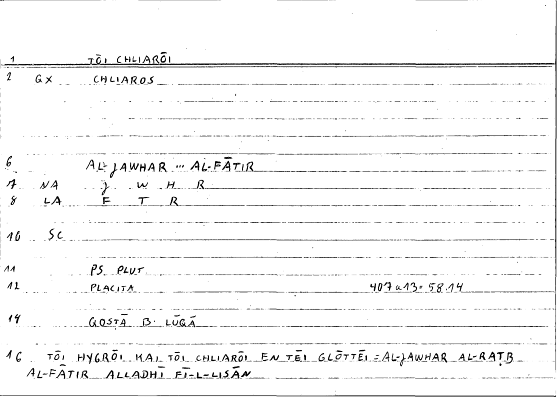 1 TŌI CHLIARŌI
2 GX CHLIAROS
6 AL-JAWHAR ... AL-FĀTIR
7 NA J W H R
8 LA F T R
10 SC
11 PS. PLUT
12 PLACITA 407a13 = 58.14
14 QOSTĀ B. LŪQĀ
16 TŌI HYGRŌI KAI TŌI CHLIARŌI EN TĒI GLŌTTĒI = AL-JAWHAR AL-RAṬB
AL-FĀTIR ALLADHĪ FĪ-L-LISĀN